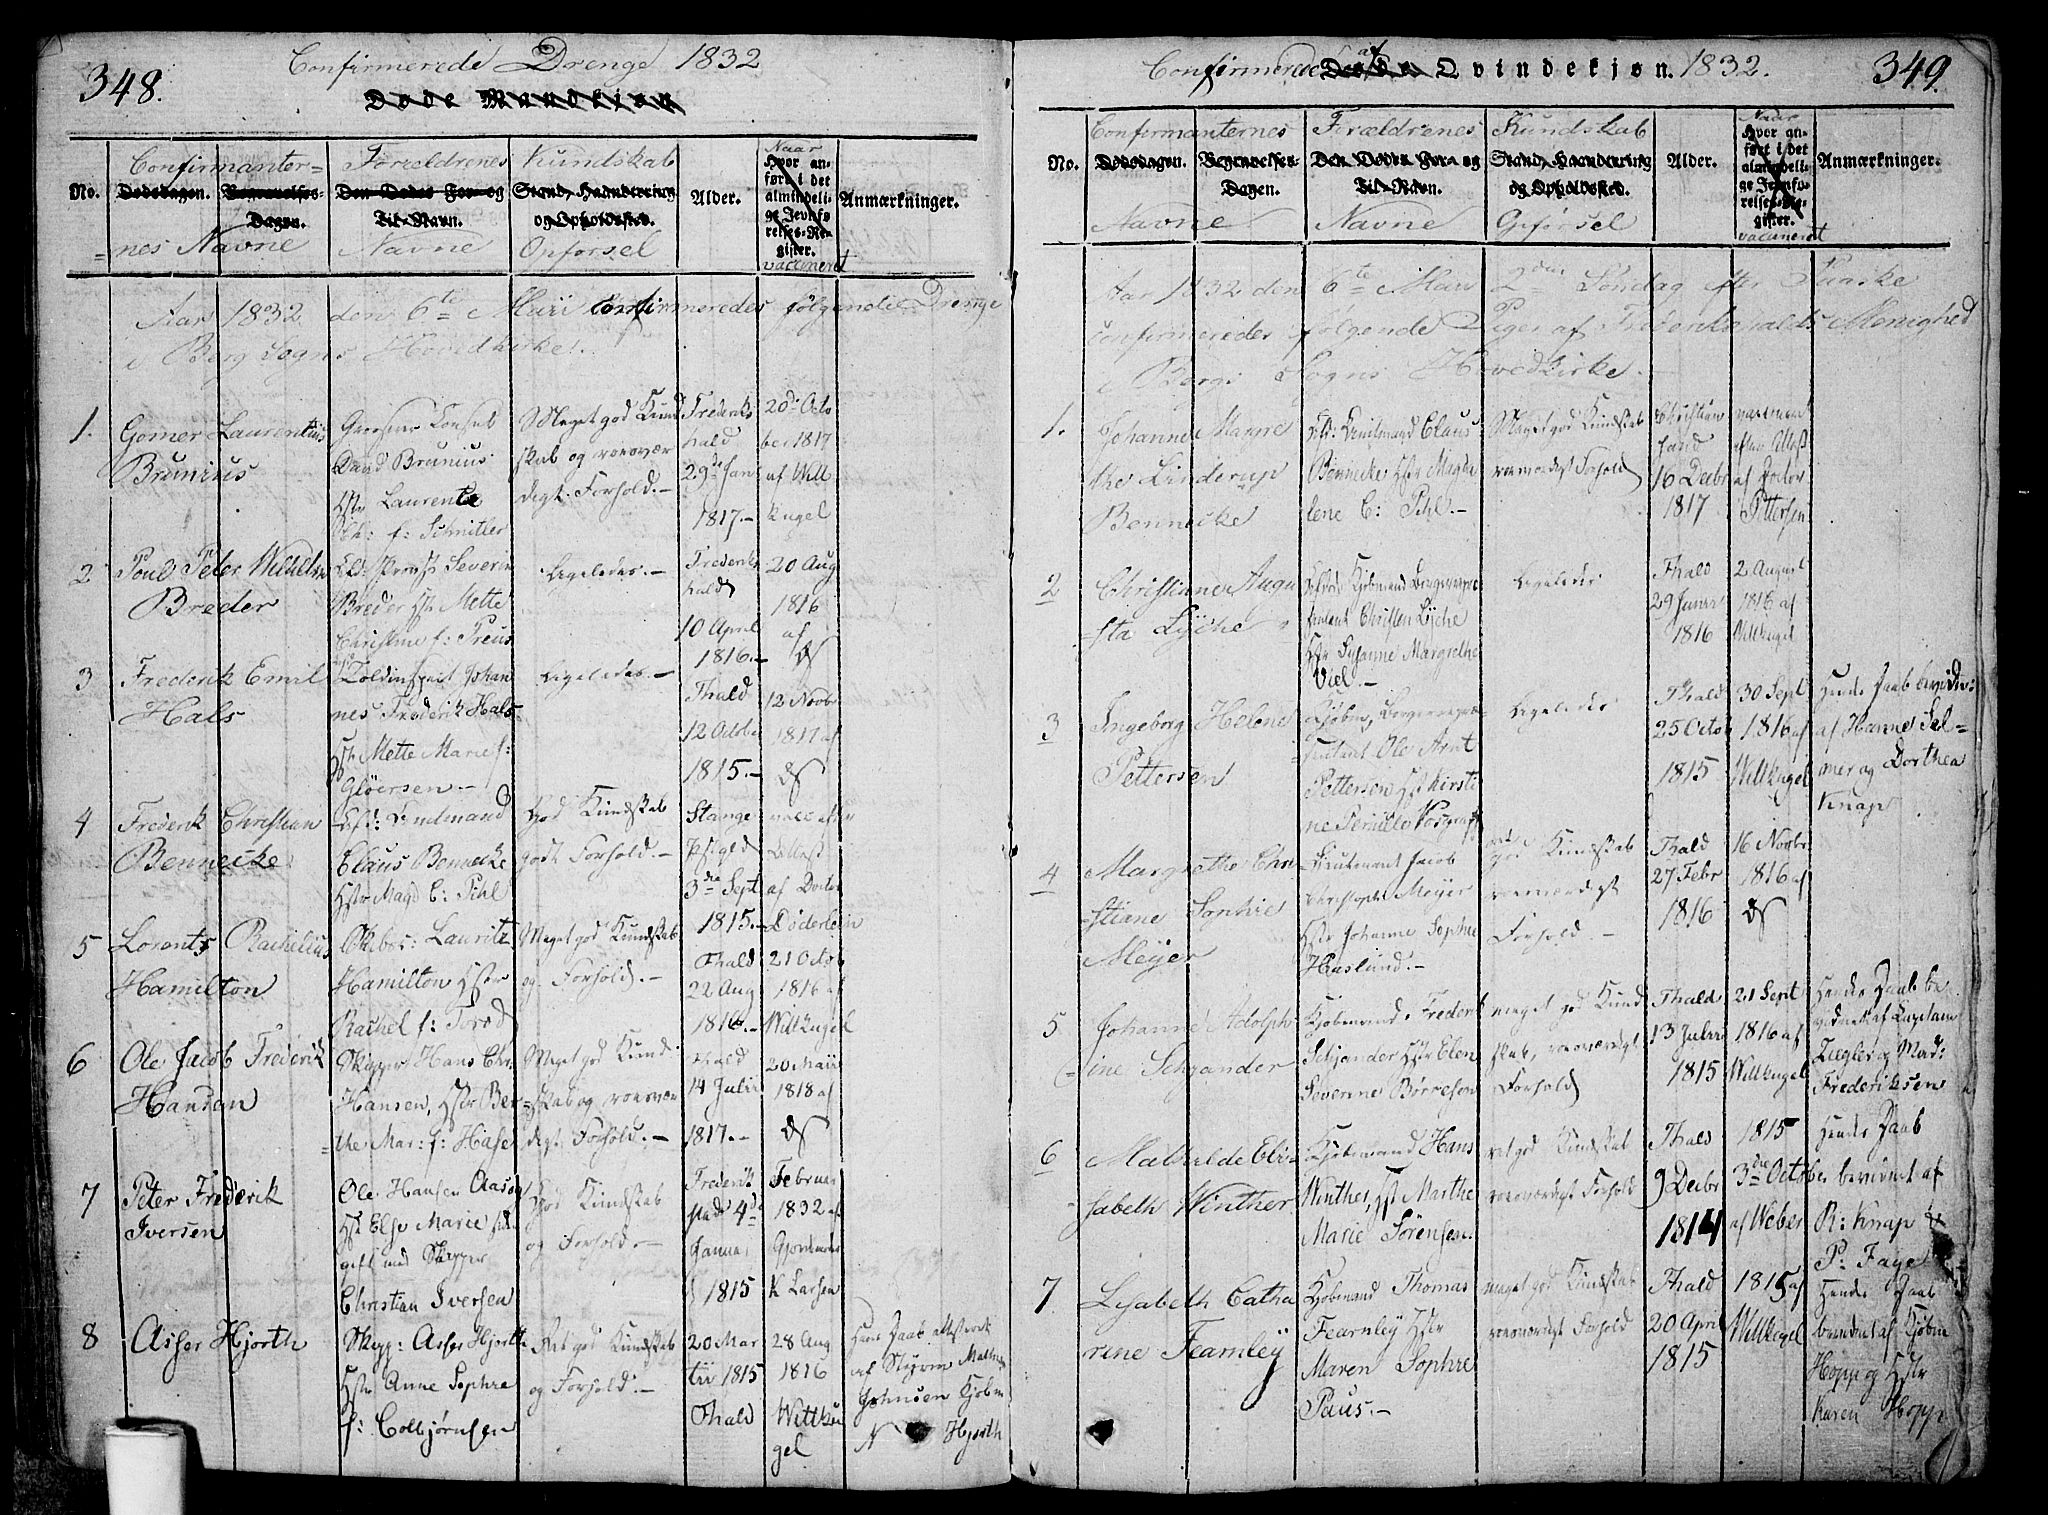 348.
Confirmerede Drenge 1832
Døde Mandkiøn
No.
Confirmanter-
Dødsdagen. Begravelses-Dagen.
=nes Navne
Forældrenes
Den Dødes For- og Til-Navn.
Navne
Kundskab
Stand, Haandtering og Opholdsted.
Opførsel
Alder.
Naar
Hvor anført i det almindelige Jevnførelses-Register.
vaccineret
Anmærkninger.
Aar 1832 den 6te Maii Confirmeredes følgende Drenge
i Berg Sogns Hovedkirke.
1.
Gomer Laurentius
Brunius
Consul
David Brunius
Hstr Laurentze
Ch: f: Schnitler
Meget god Kund
skab og roesvær
digt Forhold.-
Frederiks
hald
29de Jan
1817.-
20de Octo
ber 1817
af Witt
kugel
2
Poul Peter Wilhelm
Breder
Provst Severin
Breder Hstr Mette
Christine f: Preus
Ligeledes.-
Frederiks
hald
10 April
1816.-
20 Aug
1816
af
ds
3
Frederik Emil
Hals
Toldinspect Johan
nes Frederik Hals
Hstr Mette Marie f:
Gløersen.-
Ligeledes.-
Fhald
12 Octobr
1815.-
12 Novbr
1817 af
ds
4
Frederik Christian
Bennecke
Claus Bennecke
Hstr Magd C: Pihl
God Kundskab
godt Forhold.-
Stange
Pstgld
3die Sept
1815.-
vacc efter
Attest
af Doctor
Døderlein
5
Lorents Rachelius
Hamilton
Lauritz
Hamilton Hstr
Rachel f: Torod
Meget god Kundskab
og Forhold.-
Fhald
22 Aug
1816.-
21 Octob
1816 af
Wittkugel
6
Ole Jacob Frederik
Hansen
Skipper Hans Chr:
Hansen, Hstr Ber
=the Mar: f: Hase
Meget god Kund
=skab og roesvær
digt Forhold.-
Fhald
14 Julii
1817.-
20 Maii
1818 af
ds
7
Peter Frederik
Iversen
Ole Hansen Aasog
Hstr Else Marie
gift med Skipper
Christian Iversen
God Kundskab
og Forhold.-
Frederik
stad 4de
Januar
1815
Februar
1832 af
K Larsen
8
Asser Hjorth
Skipp: Asser Hjorth
Hstr Anne Sophie
f: Colbjørnsen
Ret god Kundskab
og Forhold.-
20 Mar
tii 1815
Fhald
28 Aug
1816
Wittku
gel
Hans Daab attesteret
af Styrm
Johnsen Kjøbm
N Hjorth
349.
Confirmerede af Døde Qvindekiøn. 1832.
No.
Confirmanternes
Dødsdagen. Begravelses-Dagen.
Navne
Forældrenes
Den Dødes For- og Til-Navn.
Navne
Kundskab
Stand, Haandtering og Opholdsted.
Opførsel
Alder.
Naar
Hvor anført i det almindelige Jevnførelses-Register.
vaccineret
Anmærkninger.
Aar 1832 den 6te Mai 2den Søndag efter Paaske
confirmeredes følgende Piger af Frederikshalds Menighed
i Bergs Sogns Hovedkirke.-
1.
Johanne Marie
Linderup
Bennecke
Claus
Bennecke Hstr Magda
lene C: Pihl.-
Meget god Kundskab
roesværdigt Forhold
Christian
sand
16 Decbr
1817
vaccineret
efter Attest
af Doctor
Pettersen
2
Christianne Augu
sta Lyche
Kjøbmand Borgerrepræ
sentant Christen Lyche
Hstr Susanne Margrethe
Viel.-
Ligeledes
Fhald
29 Junii
1816
2 August
1816 af
Wittkugel
3
Ingeborg Helene
Pettersen
Kjøbm, Borgerrepræ
=sentant Ole Arnt
Pettersen Hstr Kirsti
ne Pernille Vosgraff
Ligeledes
Fhald
25 Octob
1815
30 Sept
1816 af
Wittkugel
Hendes Daab bevidnes
af Hanne Sel=
mer og Dorthea
Knap
4
Margrethe Chri
=stiane Sophie
Meijer
Lieutenant Jacob
Christoph Meijer
Hstr Johanne Sophie
Haslund.-
ret
god Kundskab
roesværdigt
Forhold.-
Fhald
27 Febr
1816
16 Novbr
1816 af
ds
5
Johanne Adolph
ine Schjander
Kjøbmand Frederik
Schjander Hstr Elen
Severine Børresen
meget god Kund
skab, roesværdigt
Forhold
Fhald
13 Julii
1815
21 Sept
1816 af
Wittkugel
Hendes Daab be
vidnet af Kaptain
Ziegler og Mad:
Frederiksen
6
Mathilde Eli=
sabeth Winther
Kjøbmand Hans
Winther, Hst Marthe
Marie Sørensen.
ret god Kundskab
roesværdigt Forhold
Fhald
9 Decbr
1814
1815
3die October
af Weber
Hendes Daab
bevidnet af
R: Knap &
P: Faye
7
Lisabeth Catha
rine Fearnley
Kjøbmand Thomas
Fearnley Hstr
Maren Sophie
Paus.-
meget god Kundskab
roesværdigt Forhold
Fhald
20 April
1815
1815 af
Wittkugel
Hendes Daab
bevidnet af Kjøbm
Hopp og Hstr
Karen Hopp